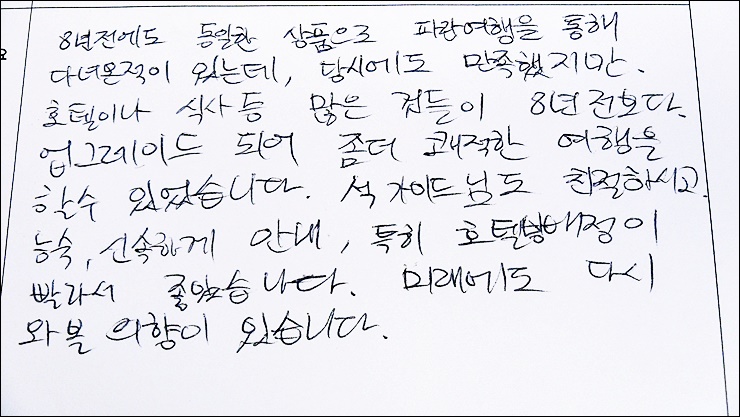 8년전에도 동일한 상품으로 파랑여행을 통해
다녀온적이 있는데, 당시에도 만족했지만.
호텔이나 식사등 많은 것들이 8년 전보다.
업그레이드 되어 좀더 쾌적한 여행을
할수 있었습니다. 석 가이드님도 친절하시고.
능숙, 신속하게 안내, 특히 호텔방배정이
빨라서 좋았습니다. 미래에도 다시
와볼 의향이 있습니다.